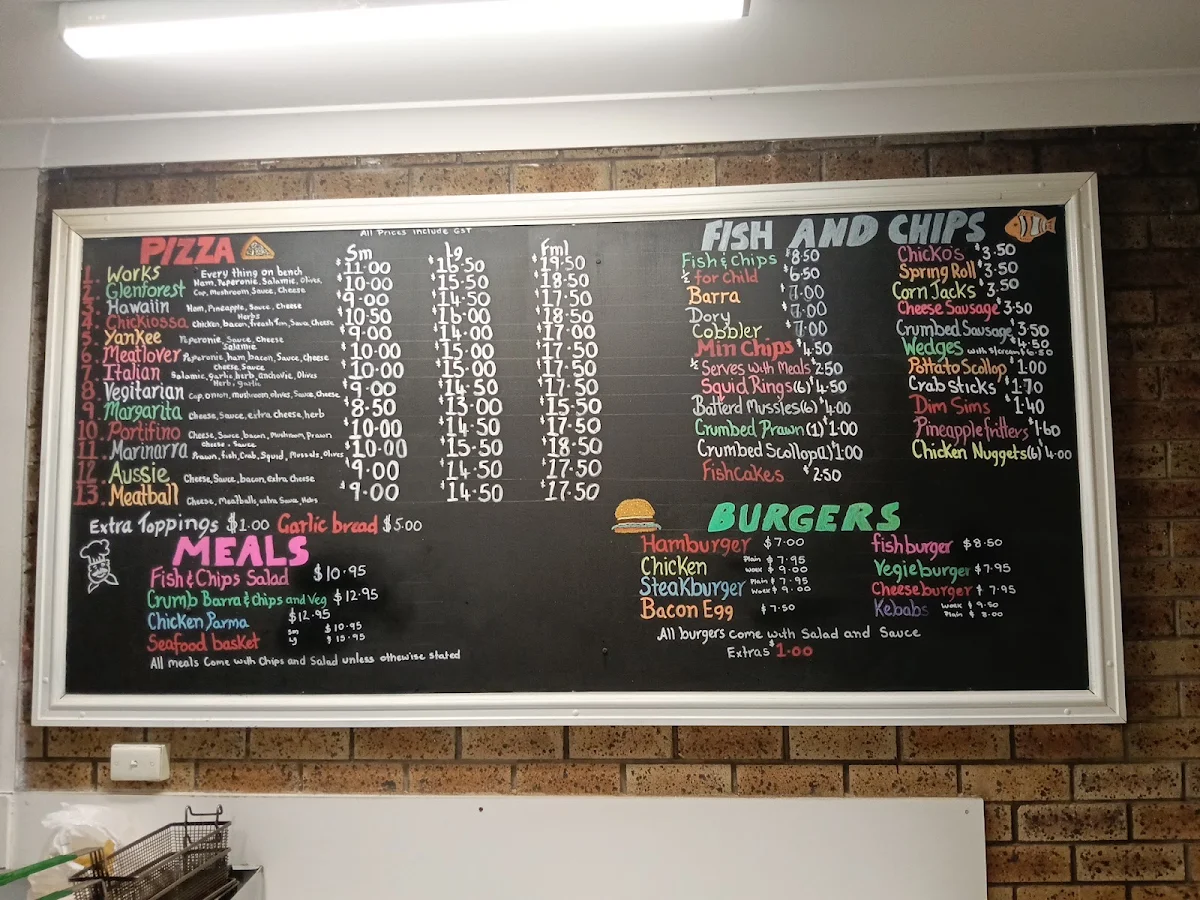 All Prices include GST
PIZZA Sm Lg Fml
1. Works Every thing on bench $11.00 $16.50 $19.50
2. Glenforest Ham, Peperonie, Salamie, Olives, Cap, Mushroom, Sauce, Cheese $10.00 $15.50 $18.50
3. Hawaiin Ham, Pineapple, Sauce, Cheese $9.00 $14.50 $17.50
4. Chickiossa Herbs chicken, bacon, freash Tom, Sauce, Cheese $10.50 $16.00 $18.50
5. Yankee Peperonie, Sauce, Cheese $9.00 $14.00 $17.00
6. Meatlover Salamie Peperonie, ham, bacon, Sauce, Cheese $10.00 $15.00 $17.50
7. Italian Cheese, Sauce Salamie, garlic, herb, anchovie, Olives $10.00 $15.00 $17.50
8. Vegitarian Herb, garlic Cap, onion, mushroom, olives, Sauce, Cheese $9.00 $14.50 $17.50
9. Margarita Cheese, Sauce, extra Cheese, herb $8.50 $13.00 $15.50
10. Portifino Cheese, Sauce, bacon, Mushroom, Prawn $10.00 $14.50 $17.50
11. Marinarra Cheese, Sauce Prawn, fish, Crab, Squid, Mussels, Olives $10.00 $15.50 $18.50
12. Aussie Cheese, Sauce, bacon, extra Cheese $9.00 $14.50 $17.50
13. Meatball Cheese, Meatballs, extra Sauce, Herbs $9.00 $14.50 $17.50
Extra Toppings $1.00 Garlic bread $5.00
MEALS
Fish & Chips Salad $10.95
Crumb Barra & Chips and Veg $12.95
Chicken Parma $12.95
Seafood basket Sm $10.95
Lg $15.95
All meals Come with Chips and Salad unless othewise stated
FISH AND CHIPS
Fish & Chips $8.50
½ for Child $6.50
Barra $7.00
Dory $7.00
Cobbler $7.00
Min Chips $4.50
½ Serves with Meals $2.50
Squid Rings (6) $4.50
Batterd Mussles (6) $4.00
Crumbed Prawn (1) $1.00
Crumbed Scollop (1) $1.00
Fishcakes $2.50
Chicko's $3.50
Spring Roll $3.50
Corn Jacks $3.50
Cheese Sausage $3.50
Crumbed Sausage $3.50
Wedges $4.50 with S/cream $6.50
Pottato Scollop $1.00
Crab sticks $1.70
Dim Sims $1.40
Pineapple fritters $1.60
Chicken Nuggets (6) $4.00
BURGERS
Hamburger $7.00
Chicken Plain $7.95
Work $9.00
Steakburger Plain $7.95
Work $9.00
Bacon Egg $7.50
fishburger $8.50
Vegieburger $7.95
Cheeseburger $7.95
Kebabs Work $9.50
Plain $8.00
All burgers come with Salad and Sauce
Extras $1.00